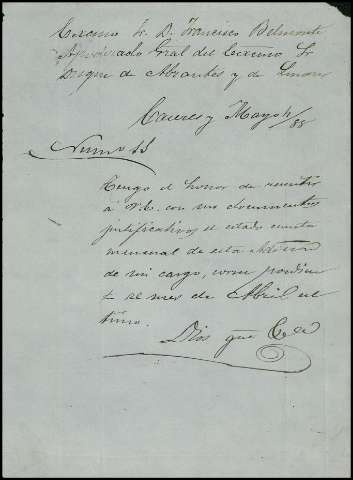 Excmo Sr. D. Francisco Belmonte
Apoderado Gral del Excmo Sr
Duque de Abrantes y de Linares
Caceres y Mayo 4/88
Numo 11
Tengo el honor de remitir
á V.E. con sus documentos
justificativos, el estado cuenta
mensual de esta Admon
de mi cargo, corre pondien
te al mes de Abril úl
timo.
Dios gue